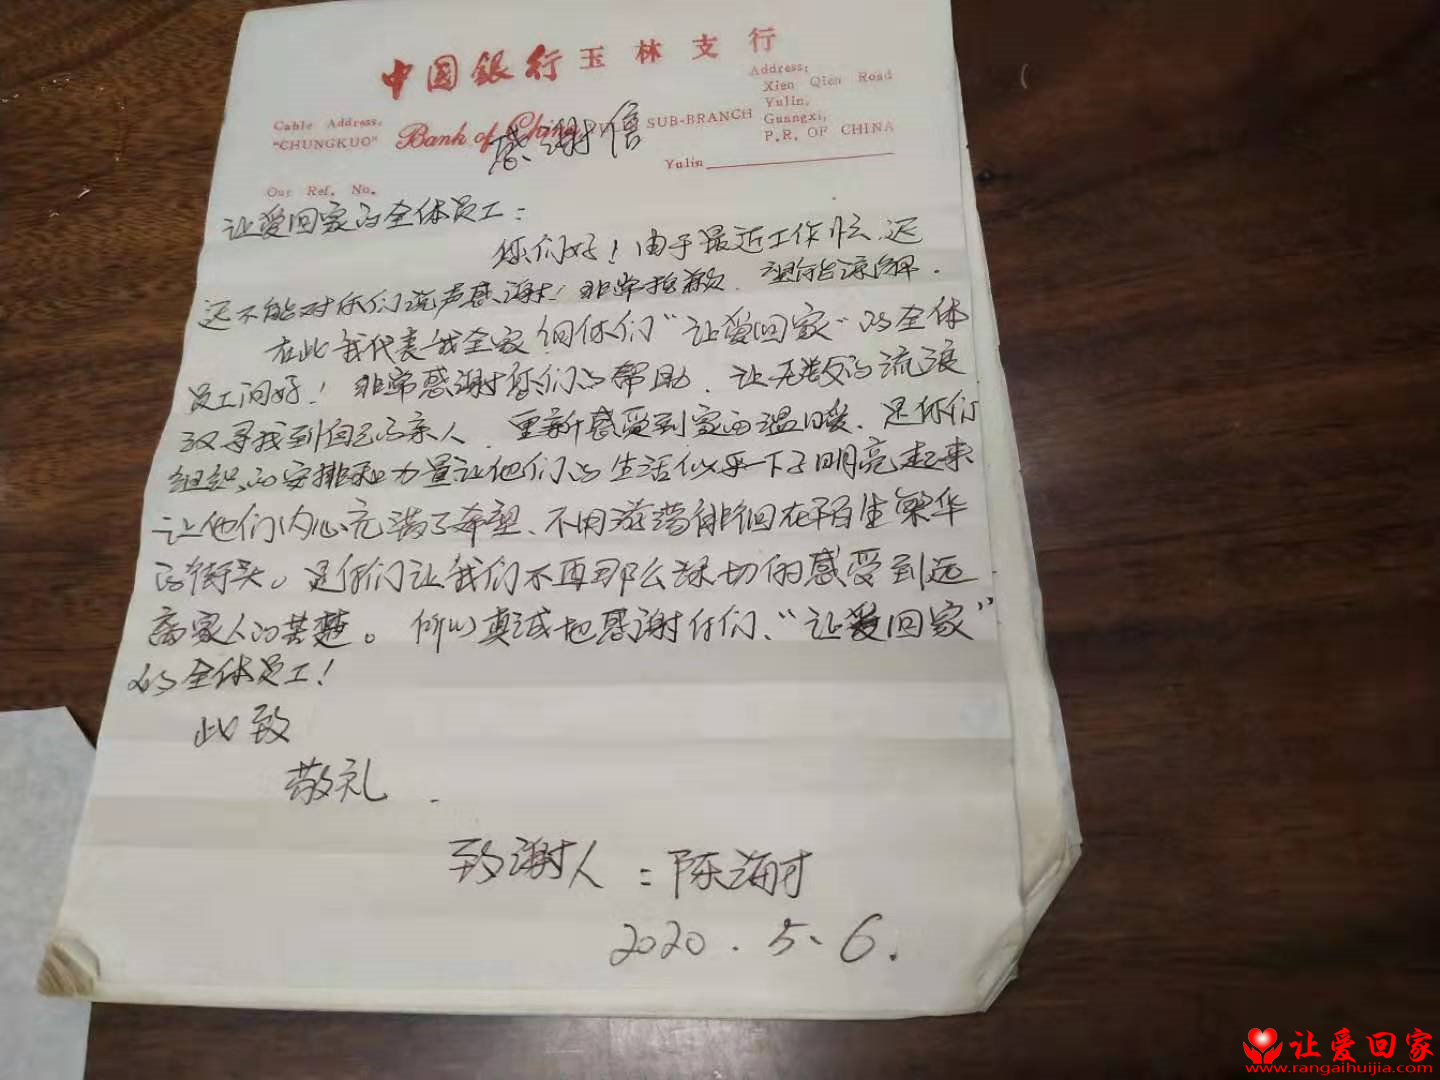 中国銀行玉林支行
Address:
Xien Qien Road
Yulin,
Guangxi,
P.R. OF CHINA
Cable Address,
"CHUNGKUO"
Bank of China SUB-BRANCH
感谢信
Yulin
Our Ref. No.
让爱回家的全体员工：
你们好！由于最近工作忙、迟
迟不能对你们说声感谢！非常抱歉、望能谅解.
在此我代表我全家向你们"让爱回家"的全体
员工问好！非常感谢您们的帮助、让无数的流浪
汉寻找到自己的亲人、重新感受到家的温暖、是你们
组织的安排和力量让他们的生活似乎一下子明亮起来
让他们内心充满了希望、不用游荡徘徊在陌生繁华
的街头。是你们让我们不再那么深切的感受到远
离家人的苦楚。所以真诚地感谢你们、"让爱回家"
的全体员工！
此致
敬礼.
致谢人：陈海
2020.5.6.
让爱回家
www.rangaihuijia.com